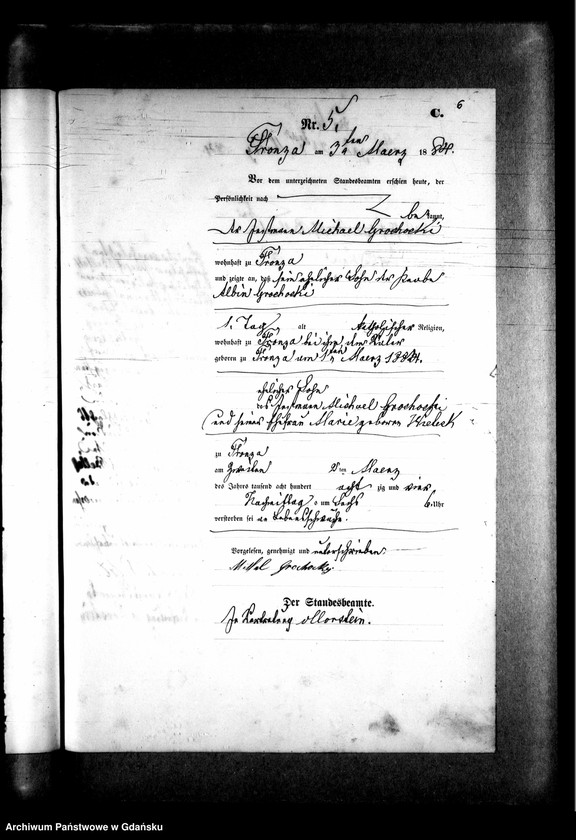 6
C.
Nr. 5.
Fronza am 3ten Maerz 1884.
Vor dem unterzeichneten Standesbeamten erschien heute, der
Persönlichkeit nach
be kannt,
der Michael Grochocki
wohnhaft zu Fronza
und zeigte an, daß sein ehelicher Sohn der Knabe
Albin Grochocki
1. Tag alt katholischer Religion,
wohnhaft zu Fronza bei ihm dem Vater
geboren zu Fronza am 1ten Maerz 1884.
ehelicher Sohn
des Michael Grochocki
und seiner Ehefrau Marie geboren
zu Fronza
am zweiten 2ten Maerz
des Jahres tausend acht hundert acht zig und vier
Nachmittag s um Sechs 6. Uhr
verstorben sei an Lebensschwäche.
Vorgelesen, genehmigt und unterschrieben
Grochocky.
Der Standesbeamte.
In Vertretung